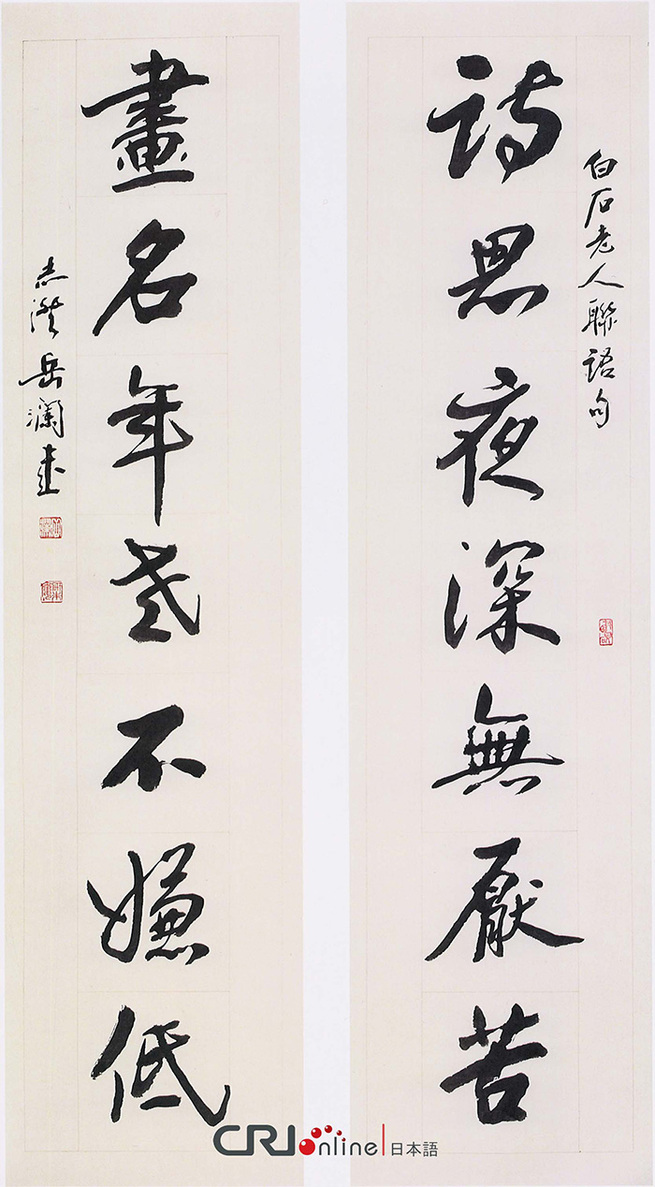 白石老人聯語句
詩思夜深無厭苦
畫名年老不嫌低
岳瀾書
CRIonline 日本語